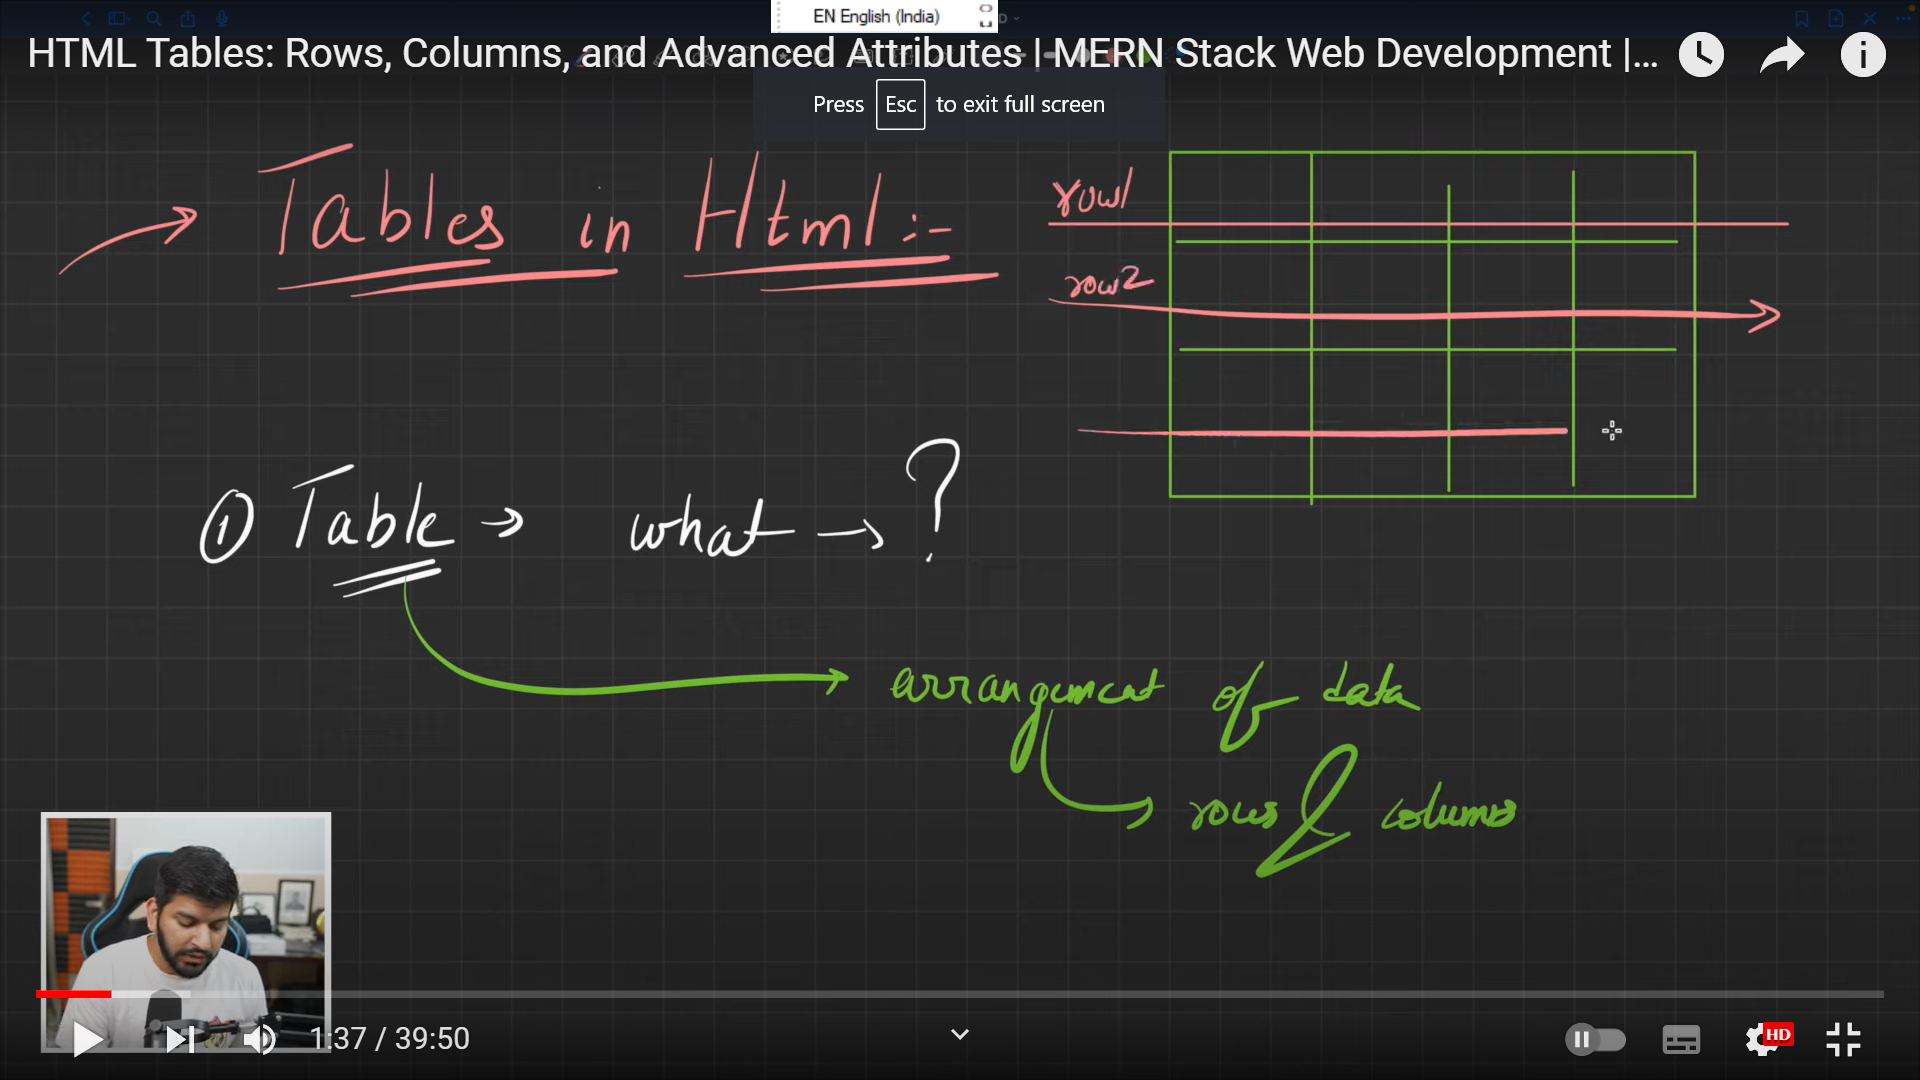 EN English (India)
HTML Tables: Rows, Columns, and Advanced Attributes | MERN Stack Web Development |...
Press Esc to exit full screen
Tables in Html :-
row1
row2
① Table → what → ?
arrangement of data
rows & columns
1:37 / 39:50
HD